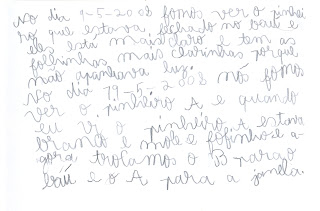 No dia 9-5-2008 fomos ver o pinhei
ro que estava fechado no baú e
eles está mais claro e tem as
folhinhas mais clarinhas porque
não apanhava luz.
No dia 19-5-2008 nós fomos
ver o pinheiro A e quando
eu vi o pinheiro A estava
branco e mole e fofinho e a-
gora trocamos o B para o
baú e o A para a janela.